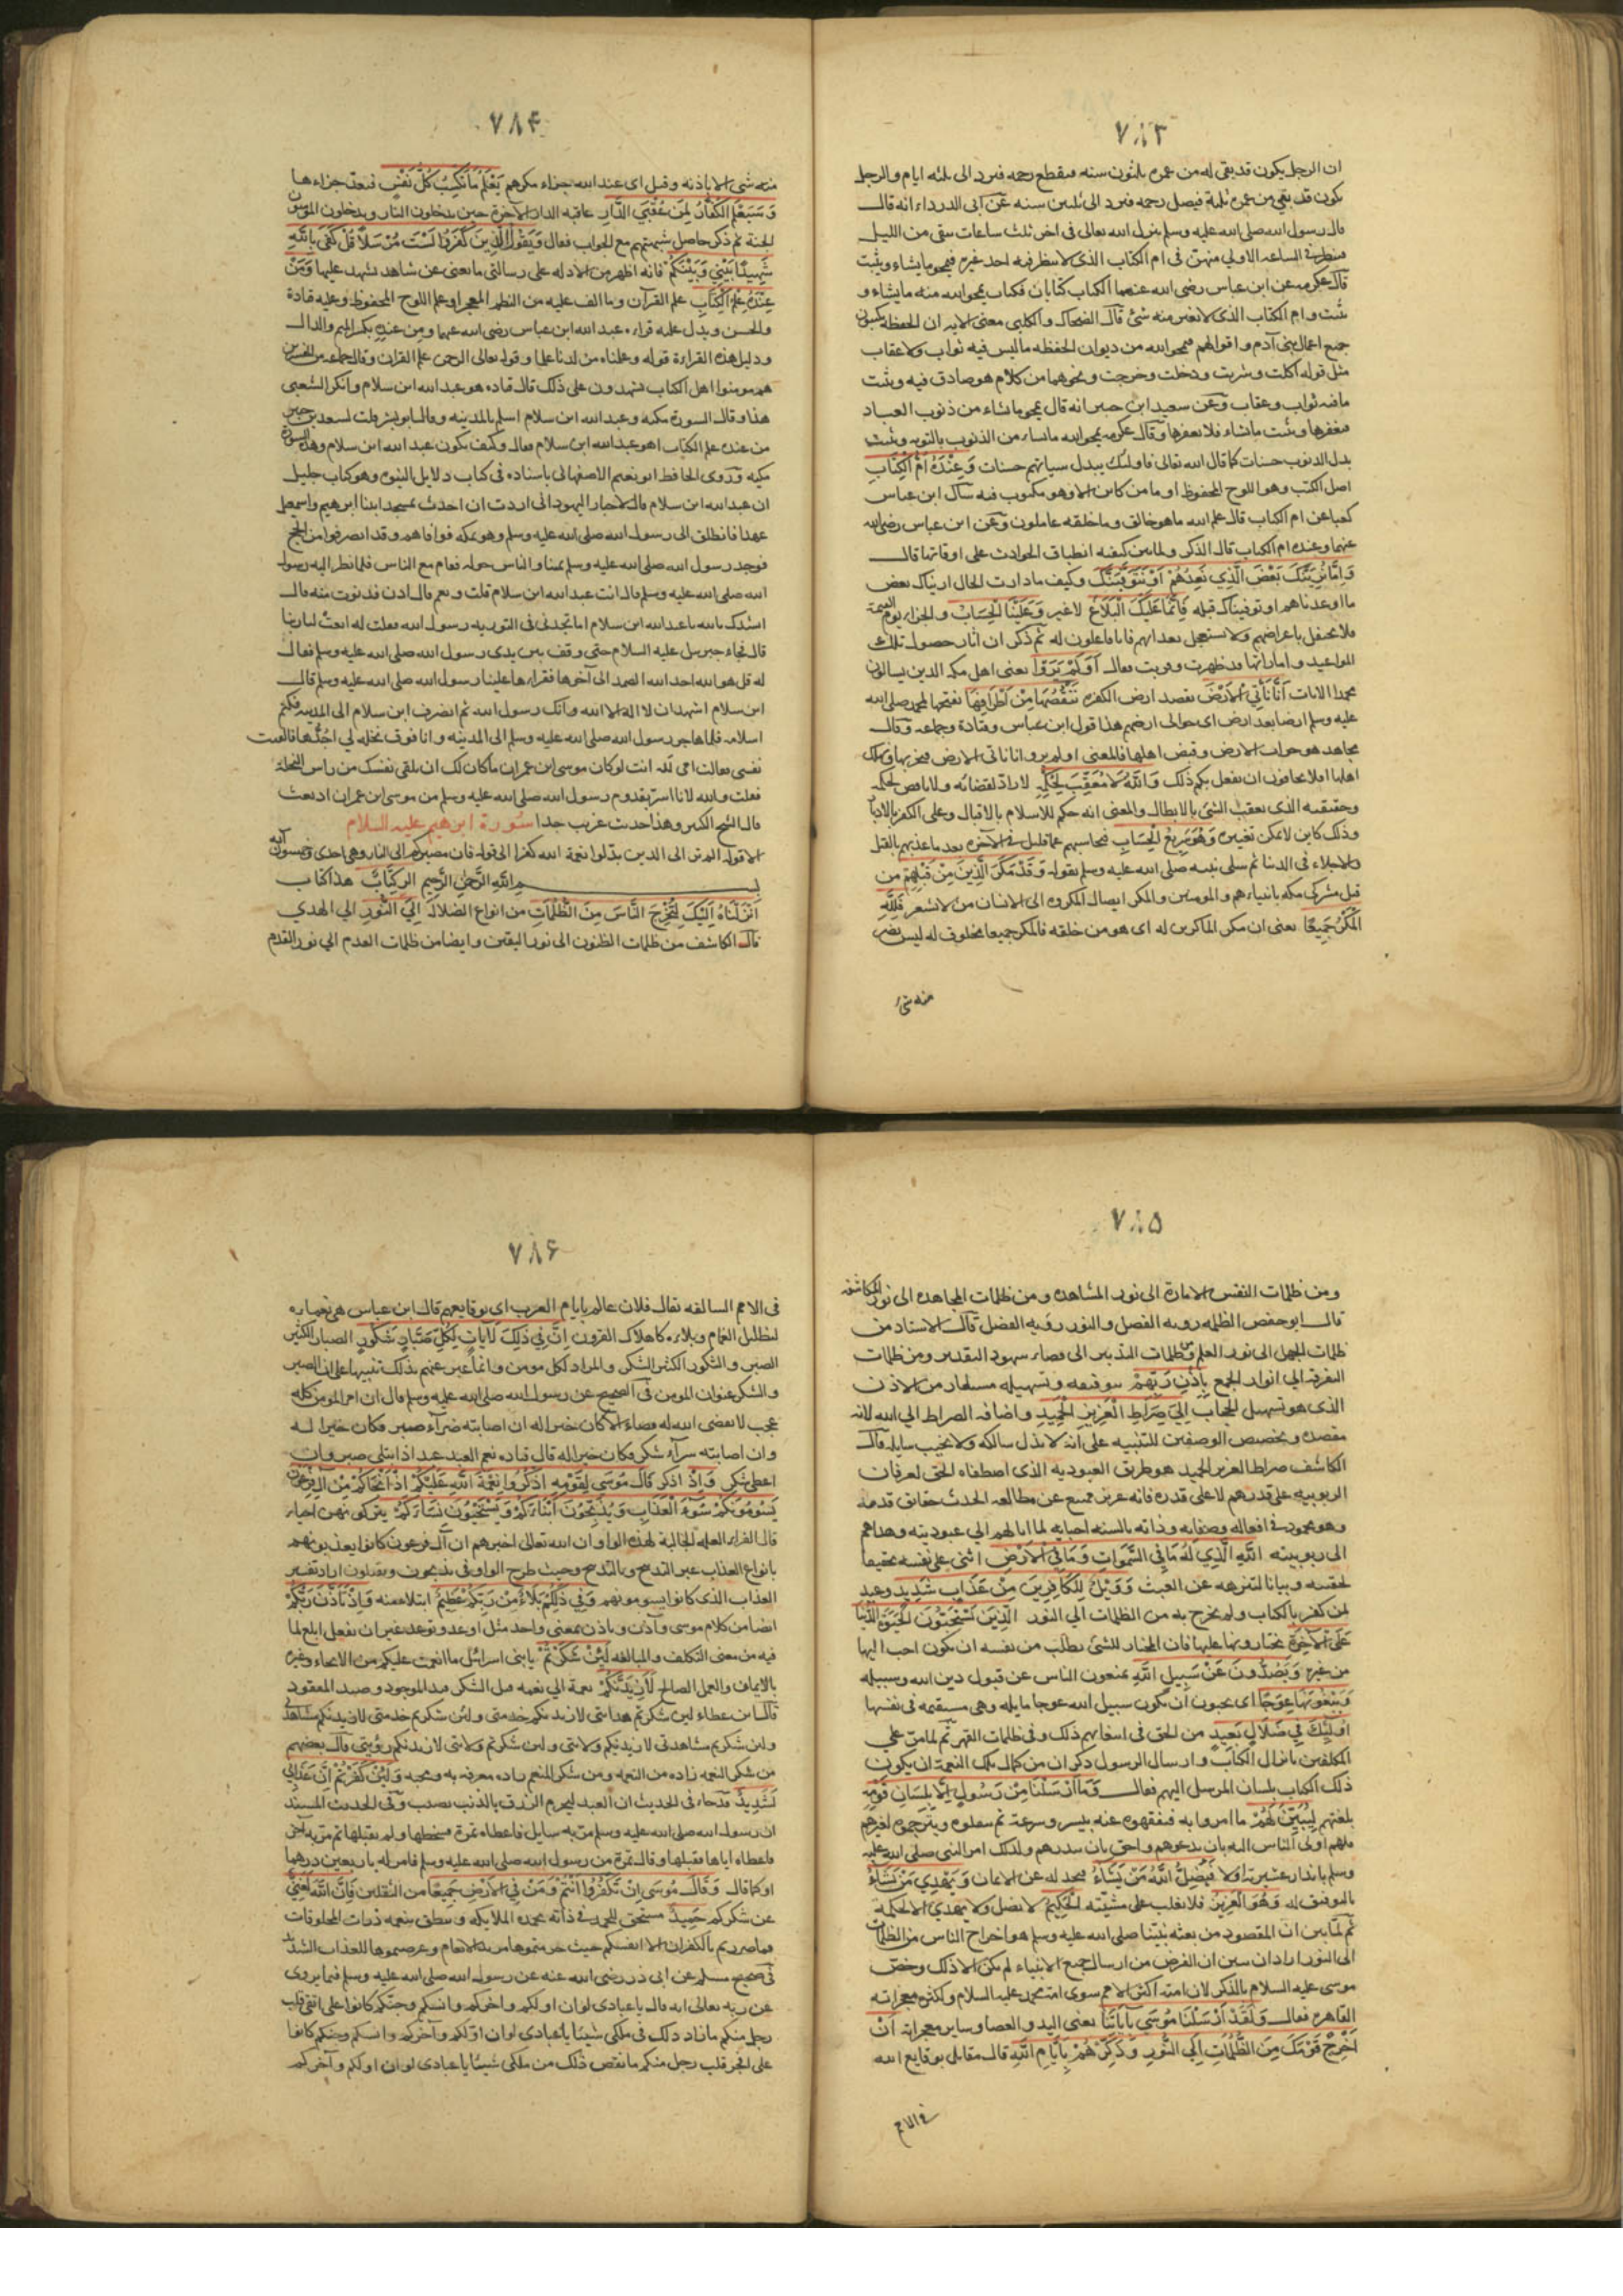 ٧٨٣
ان الرجل يكون قد بقي له من عمره ثلثون سنه فيقطع رحمه فيرد الى ثلثه ايام والرجل
يكون قد بقي من عمره ثلثة فيصل رحمه فيرد الى ثلثين سنه عن ابى الدرداء انه قال
قال رسول الله صلى الله عليه وسلم ينزل الله تعالى فى اخر ثلث ساعات يبقى من الليل
فينظر فى الساعه الاولي منهن فى ام الكتاب الذى لا ينظر فيه احد غيره فيمحو ما يشاء ويثبت
قال عكرمه عن ابن عباس رضى الله عنهما الكتاب كتابان فكتاب يمحو الله منه ما يشاء و
يثبت وام الكتاب الذى لا يغير منه شئ قال الضحاك والكلبى معنى الايه ان الحفظه يكتبون
جميع اعمال بنى آدم واقوالهم فيمحو الله من ديوان الحفظه ما ليس فيه ثواب ولا عقاب
مثل قوله اكلت وشربت ودخلت وخرجت ونحوهما من كلام هو صادق فيه ويثبت
ما فيه ثواب وعقاب وعن سعيد ابن جبير انه قال يمحو ما يشاء من ذنوب العباد
فيغفرها ويثبت ما يشاء فلا يغفرها وقال عكرمه يمحو الله ما يشاء من الذنوب بالتوبه ويثبت
بدل الذنوب حسنات كما قال الله تعالى فاولئك يبدل سياتهم حسنات وَعِنْدَهُ اُمُّ الْكِتَابِ
اصل الكتب وهو اللوح المحفوظ او ما من كاين الا وهو مكتوب فيه سأل ابن عباس
كعبا عن ام الكتاب قال علم الله ما هو خالق وما خلقه عاملون وعن ابن عباس رضى الله
عنهما وعنده ام الكتاب قال الذكر ولما بين كيفيه انطباق الحوادث على اوقاتها قال
وَاِمَّا نُرِيَنَّكَ بَعْضَ الَّذِي نَعِدُهُمْ اَوْ نَتَوَفَّيَنَّكَ وكيف ما دارت الحال اريناك بعض
ما اوعدناهم او توفيناك قبله فَاِنَّمَا عَلَيْكَ الْبَلَاغُ لا غير وَعَلَيْنَا الْحِسَابُ والجزاء يوم القيمة
فلا تحتفل باعراضهم ولا تستعجل بعذابهم فانا فاعلون له ثم ذكر ان اثار حصول تلك
المواعيد واماراتها قد ظهرت وقويت فقال اَوَلَمْ يَرَوْا يعنى اهل مكه الذين يسالون
محمدا الايات اَنَّا نَأْتِي الْاَرْضَ نقصد ارض الكفره نَنْقُصُهَا مِنْ اَطْرَافِهَا نفتحها لمحمد صلى الله
عليه وسلم ارضا بعد ارض اى حوالى ارضهم هذا قول ابن عباس وقتادة وجماعه وقال
مجاهد هو خراب الارض وقبض اهلها فالمعنى اولم يروا انا ناتى الارض فنخربها ونهلك
اهلها افلا يخافون ان نفعل بكم ذلك وَاللَّهُ لَا مُعَقِّبَ لِحُكْمِهِ لا راد لقضائه ولا ناقض لحكمه
وحقيقه الذى يعقب الشئ بالابطال والمعنى انه حكم للاسلام بالاقبال وعلى الكفر بالادبار
وذلك كاين لا يمكن تغييره وَهُوَ سَرِيعُ الْحِسَابِ فيحاسبهم عما قليل فى الآخره بعد ما عذبهم بالقتل
والاجلاء فى الدنيا ثم سلى نبيه صلى الله عليه وسلم بقوله وَقَدْ مَكَرَ الَّذِينَ مِنْ قَبْلِهِمْ من
قبل مشركى مكه بانبياءهم والمومنين والمكر ايصال المكروه الى الانسان من لا يشعر فَلِلَّهِ
الْمَكْرُ جَمِيعًا يعنى ان مكر الماكرين له اى هو من خلقه فالمكر جميعا مخلوق له ليس يضر
منه شئ
٧٨۴
منه شئ الا باذنه وقيل اى عند الله جزاء مكرهم يَعْلَمُ مَا تَكْسِبُ كُلُّ نَفْسٍ فيعد جزاءها
وَسَيَعْلَمُ الْكُفَّارُ لِمَنْ عُقْبَى الدَّارِ عاقبه الدار الآخرة حين يدخلون النار ويدخلون المومنون
الجنة ثم ذكر حاصل شبهتهم مع الجواب فقال وَيَقُولُ الَّذِينَ كَفَرُوا لَسْتَ مُرْسَلًا قُلْ كَفَى بِاللَّهِ
شَهِيدًا بَيْنِي وَبَيْنَكُمْ فانه اظهر من الادله على رسالتى ما يغنى عن شاهد يشهد عليها وَمَنْ
عِنْدَهُ عِلْمُ الْكِتَابِ علم القرآن وما الف عليه من النظم المعجز او علم اللوح المحفوظ وعليه قتادة
والحسن ويدل عليه قراءه عبد الله ابن عباس رضى الله عنهما ومِن عندِهِ بكسر الميم والدال
ودليل هذه القراءة قوله وعلمناه من لدنا علما وقوله تعالى الرحمن علم القران وقال جماعه من المفسرين
هم مومنوا اهل الكتاب يشهدون على ذلك قال قتاده هو عبد الله ابن سلام وانكر الشعبى
هذا وقال السورة مكيه وعبد الله ابن سلام اسلم بالمدينه وقال ابو بشر قلت لسعيد بن جبير
من عنده علم الكتاب اهو عبد الله ابن سلام فقال وكيف يكون عبد الله ابن سلام وهذه السورة
مكيه وروى الحافظ ابو نعيم الاصفهانى باسناده فى كتاب دلايل النبوه وهو كتاب جليل
ان عبد الله ابن سلام قال لاحبار اليهود انى اردت ان احدث بمسجد ابينا ابرهيم واسمعيل
عهدا فانطلق الى رسول الله صلى الله عليه وسلم وهو بمكه فوافاهم وقد انصرفوا من الحج
فوجد رسول الله صلى الله عليه وسلم بمنا والناس حوله فقام مع الناس فلما نظر اليه رسول
الله صلى الله عليه وسلم قال انت عبد الله ابن سلام قلت نعم قال ادن فدنوت منه قال
انشدك بالله يا عبد الله ابن سلام اما تجدنى فى التوريه رسول الله فقلت له انعت لنا ربنا
قال فجاء جبريل عليه السلام حتى وقف بين يدى رسول الله صلى الله عليه وسلم فقال
له قل هو الله احد الله الصمد الى آخرها فقراءها علينا رسول الله صلى الله عليه وسلم قال
ابن سلام اشهد ان لا اله الا الله وانك رسول الله ثم انصرف ابن سلام الى المدينه فكتم
اسلامه فلما هاجر رسول الله صلى الله عليه وسلم الى المدينه وانا فوق نخله لي اجُدُّها فالقيت
نفسى فقالت امى لله انت لو كان موسى ابن عمران ما كان لك ان تلقى نفسك من راس النخلة
فقلت والله لانا اسر بقدوم رسول الله صلى الله عليه وسلم من موسى ابن عمران اذ بعث
قال الشيخ الكبير وهذا حديث غريب جدا سورة ابرهيم عليه السلام
الا قوله الم تر الى الذين بدلوا نعمة الله كفرا الى قوله فان مصيركم الى النار وهى احدى وخمسون آيه
بسم الله الرَّحْمٰنِ الرَّحِيمِ الر كِتَابٌ هذا كتاب
اَنْزَلْنَاهُ اِلَيْكَ لِتُخْرِجَ النَّاسَ مِنَ الظُّلُمَاتِ من انواع الضلاله اِلَى النُّورِ الي الهدي
قال الكاشف من ظلمات الظنون الى نور اليقين وايضا من ظلمات العدم الي نور القدم
٧٨۵
ومن ظلمات النفس الامارة الى نور المشاهده ومن ظلمات المجاهده الى نور المكاشفه
قال ابو حفص الظلمه رويه الفصل والنور رويه الفضل قال الاستاد من
ظلمات الجهل الى نور العلم ومن ظلمات التدبير الى فضاء شهود التقدير ومن ظلمات
التفرقة الى انوار الجمع بِاِذْنِ رَبِّهِمْ بتوفيقه وتسهيله مستعار من الاذن
الذى هو تسهيل للحجاب اِلَى صِرَاطِ الْعَزِيزِ الْحَمِيدِ واضافه الصراط الي الله لانه
مقصده وتخصيص الوصفين للتنبيه على انه لا يذل سالكه ولا يخيب سابله قال
الكاشف صراط العزيز الحميد هو طريق العبوديه الذى اصطفاه الحق لعرفان
الربوبيه على قدرهم لا على قدره فانه عزيز ممتنع عن مطالعه الحدث حقائق قدمه
وهو محمود فى افعاله وصفاته وذاته بالسنه احبايه لما اتا لهم الي عبوديته وهداهم
الى ربوبيته اللَّهِ الَّذِي لَهُ مَا فِي السَّمَوَاتِ وَمَا فِي الْاَرْضِ اثنى على نفسه تحقيقا
لحقيته وبيانا لتنزهه عن العبث وَوَيْلٌ لِلْكَافِرِينَ مِنْ عَذَابٍ شَدِيدٍ وعيد
لمن كفر بالكتاب ولم يخرج به من الظلمات الي النور الَّذِينَ يَسْتَحِبُّونَ الْحَيَوةَ الدُّنْيَا
عَلَى الْآخِرَةِ يختارونها عليها فان المختار للشئ يطلب من نفسه ان يكون احب اليها
من غيره وَيَصُدُّونَ عَنْ سَبِيلِ اللَّهِ يمنعون الناس عن قبول دين الله وسبيله
وَيَبْغُونَهَا عِوَجًا اى يحبون ان يكون سبيل الله عوجا مايله وهى مستقيمه فى نفسها
اُولَئِكَ فِي ضَلَالٍ بَعِيدٍ من الحق فى اسفارهم ذلك وفى ظلمات القهر ثم لما من على
المكلفين بانزال الكتاب وارسال الرسول ذكر ان من كمال تلك النعمة ان يكون
ذلك الكتاب بلسان المرسل اليهم فقال وَمَا اَرْسَلْنَا مِنْ رَسُولٍ اِلَّا بِلِسَانِ قَوْمِهِ
بلغتهم لِيُبَيِّنَ لَهُمْ ما امروا به فيفقهوه عنه بيسر وسرعة ثم ينقلوه ويترجموه لغيرهم
فانهم اولى الناس اليه بان يدعوهم واحق بان ينذرهم ولذلك امر النبى صلى الله عليه
وسلم بانذار عشيرته اولا فَيُضِلُّ اللَّهُ مَنْ يَشَاءُ فيخذله عن الايمان وَيَهْدِي مَنْ يَشَاءُ
بالتوفيق له وَهُوَ الْعَزِيزُ فلا يغلب على مشيته الْحَكِيمُ لا يضل ولا يهدي الا لحكمه
ثم لما بين ان المقصود من بعثه نبينا صلى الله عليه وسلم هو اخراج الناس من الظلمات
الى النور اراد ان يبين ان الغرض من ارسال جميع الانبياء لم يكن الا ذلك وخص
موسى عليه السلام بالذكر لان امته اكثر الامم سوى امة محمد عليه السلام ولكثره معجزاته
القاهره فقال وَلَقَدْ اَرْسَلْنَا مُوسَى بِآيَاتِنَا يعنى اليد والعصا وساير معجزاته اَنْ
اَخْرِجْ قَوْمَكَ مِنَ الظُّلُمَاتِ اِلَى النُّورِ وَذَكِّرْهُمْ بِاَيَّامِ اللَّهِ قال مقاتل بوقايع الله
فى الامم
٧٨۶
فى الامم السالفه يقال فلان عالم بايام العرب اى بوقايعهم قال ابن عباس هى نعماءه
لتظليل الغمام وبلاءه كاهلاك القرون اِنَّ فِي ذَلِكَ لَآيَاتٍ لِكُلِّ صَبَّارٍ شَكُورٍ الصبار الكثير
الصبر والشكور الكثير الشكر والمراد لكل مومن وانما عبر عنهم بذلك تنبيها على ان الصبر
والشكر عنوان المومن فى الصحيح عن رسول الله صلى الله عليه وسلم قال ان امر المومن كله
عجب لا يقضى الله له قضاء الا كان خيرا له ان اصابته ضراء صبر فكان خيرا له
وان اصابته سراء شكر فكان خيرا له قال قتاده نعم العبد عبد اذا ابتلى صبر وان
اعطى شكر وَاِذْ اذكر قَالَ مُوسَى لِقَوْمِهِ اذْكُرُوا نِعْمَةَ اللَّهِ عَلَيْكُمْ اِذْ اَنْجَاكُمْ مِنْ آلِ فِرْعَوْنَ
يَسُومُونَكُمْ سُوءَ الْعَذَابِ وَيُذَبِّحُونَ اَبْنَاءَكُمْ وَيَسْتَحْيُونَ نِسَاءَكُمْ يتركونهن احياء
قال الفراء العله الجالبة لهذه الواو ان الله تعالى اخبرهم ان آل فرعون كانوا يعذبونهم
بانواع العذاب غير التذبيح وبالتذبيح وحيث طرح الواو فى يذبحون ويقتلون اراد تفسير
العذاب الذى كانوا يسومونهم وَفِي ذَلِكُمْ بَلَاءٌ مِنْ رَبِّكُمْ عَظِيمٌ ابتلاء منه وَاِذْ تَاَذَّنَ رَبُّكُمْ
ايضا من كلام موسى وآذن وتاذن بمعنى واحد مثل اوعد وتوعد غير ان تفعل ابلغ لما
فيه من معنى التكلف والمبالغه لَئِنْ شَكَرْتُمْ يا بنى اسرائل ما انعمت عليكم من الانجاء وغيره
بالايمان والعمل الصالح لَاَزِيدَنَّكُمْ نعمة الي نعمه قيل الشكر قيد الموجود وصيد المفقود
قال ابن عطاء لين شكرتم هدايتى لازيدنكم خدمتى ولئن شكرتم خدمتى لازيدنكم مشاهدتى
ولين شكرتم مشاهدتى لازيدنكم ولايتى ولين شكرتم ولايتى لازيدنكم رؤيتى قال بعضهم
من شكر النعمه زاده من النعمه ومن شكر المنعم زاده معرفه به ومحبه وَلَئِنْ كَفَرْتُمْ اِنَّ عَذَابِي
لَشَدِيدٌ قد جاء فى الحديث ان العبد ليحرم الرزق بالذنب يصيبه وفى الحديث المسند
ان رسول الله صلى الله عليه وسلم مر به سايل فاعطاه تمرة فسخطها ولم يقبلها ثم مر به آخر
فاعطاه اياها فقبلها وقال تمرة من رسول الله صلى الله عليه وسلم فامر له باربعين درهما
او كما قال وَقَالَ مُوسَى اِنْ تَكْفُرُوا اَنْتُمْ وَمَنْ فِي الْاَرْضِ جَمِيعًا من الثقلين فَاِنَّ اللَّهَ لَغَنِيٌّ
عن شكركم حَمِيدٌ مستحق للحمد فى ذاته تحمده الملايكه وتنطق بنعمه ذرات المخلوقات
فما ضررتم بالكفران الا انفسكم حيث حرمتموها مزيد الانعام وعرضتموها للعذاب الشديد
فى صحيح مسلم عن ابى ذر رضى الله عنه عن رسول الله صلى الله عليه وسلم فيما يروى
عن ربه تعالى انه قال يا عبادى لو ان اولكم واخركم وانسكم وجنكم كانوا على اتقى قلب
رجل منكم ما زاد ذلك فى ملكى شيئا يا عبادى لو ان اولكم وآخركم وانسكم وجنكم كانوا
على افجر قلب رجل منكم ما نقص ذلك من ملكى شيئا يا عبادى لو ان اولكم وآخركم